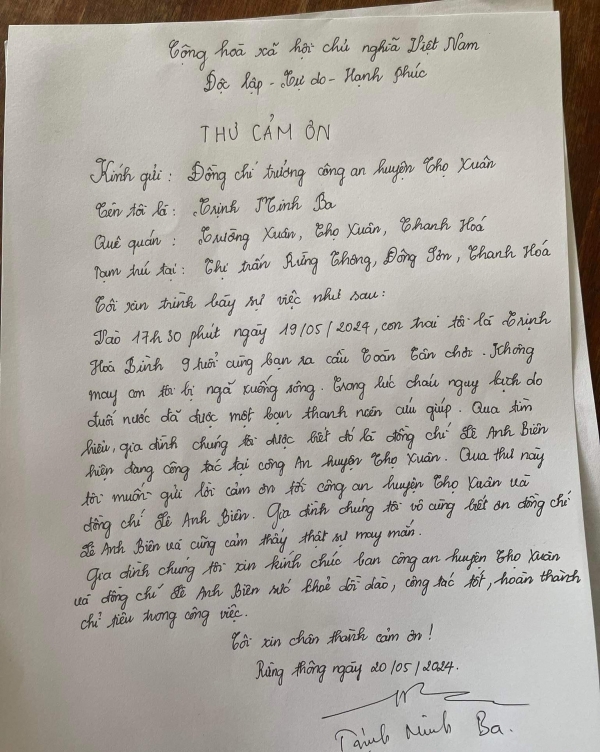 Cộng hoà xã hội chủ nghĩa Việt Nam
Độc lập - Tự do - Hạnh phúc
THƯ CẢM ƠN
Kính gửi : Đồng chí trưởng công an huyện Thọ Xuân
Tên tôi là : Trịnh Minh Ba
Quê quán : Trường Xuân, Thọ Xuân, Thanh Hoá
Tạm trú tại : Thị trấn Rừng Thông, Đông Sơn, Thanh Hoá
Tôi xin trình bày sự việc như sau :
Vào 17h 30 phút ngày 19/05/2024, con trai tôi là Trịnh
Hoà Bình 9 tuổi cùng bạn ra cầu Toán Tân chơi. Không
may con tôi bị ngã xuống sông. Trong lúc cháu nguy kịch do
đuối nước đã được một bạn thanh niên cứu giúp. Qua tìm
hiểu, gia đình chúng tôi được biết đó là đồng chí Lê Anh Biên
hiện đang công tác tại công An huyện Thọ Xuân. Qua thư này
tôi muốn gửi lời cảm ơn tới công an huyện Thọ Xuân và
đồng chí Lê Anh Biên. Gia đình chúng tôi vô cùng biết ơn đồng chí
Lê Anh Biên và cũng cảm thấy thật sự may mắn.
Gia đình chúng tôi xin kính chúc ban công an huyện Thọ Xuân
và đồng chí Lê Anh Biên sức khoẻ dồi dào, công tác tốt, hoàn thành
chỉ tiêu trong công việc.
Tôi xin chân thành cảm ơn !
Rừng thông ngày 20/05/2024.
Trịnh Minh Ba.